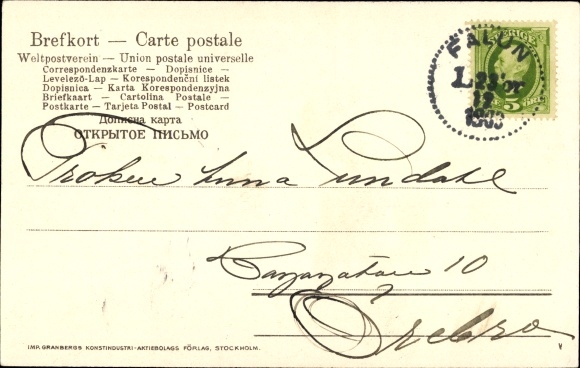 Brefkort — Carte postale
Weltpostverein — Union postale universelle
Correspondenzkarte — Dopisnice —
Levelező-Lap — Korespondenční listek
Dopisnica — Karta Korespondenzyjna
Briefkaart — Cartolina Postale —
Postkarte — Tarjeta Postal — Postcard
Дописна карта
ОТКРЫТОЕ ПИСЬМО
SVERIGE
5
FALUN
12
1903
Fröken Anna Lundahl
10
Örebro
IMP. GRANBERGS KONSTINDUSTRI-AKTIEBOLAGS FÖRLAG, STOCKHOLM.